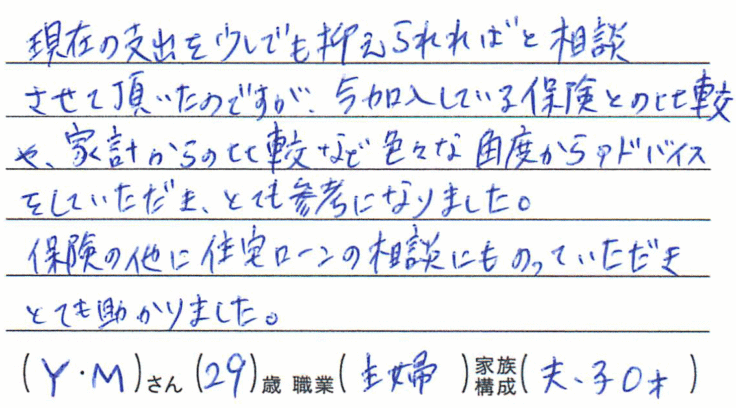 現在の支出を少しでも抑えられればと相談
させて頂いたのですが、今加入している保険との比較
や、家計からの比較など色々な角度からアドバイス
をしていただき、とても参考になりました。
保険の他に住宅ローンの相談にものっていただき
とても助かりました。
(Y・M)さん(29)歳 職業(主婦)家族構成(夫、子0才)